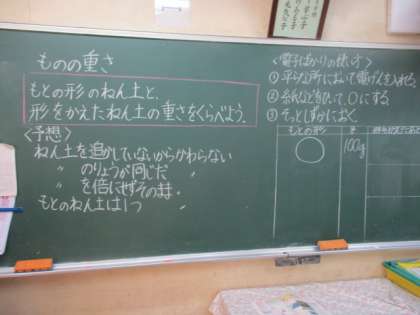 ものの重さ
もとの形のねん土と、
形をかえたねん土の重さをくらべよう。
<予想>
ねん土を追かしていないからかわらない
〃 のりょうが同じだ 〃
〃 を倍にせずそのまま
もとのねん土は1つ 〃
<電子ばかりの使い方>
①平らな所において電げんを入れる。
②紙などをひいて0にする。
③そっとしずかにおく。
もとの形
100g